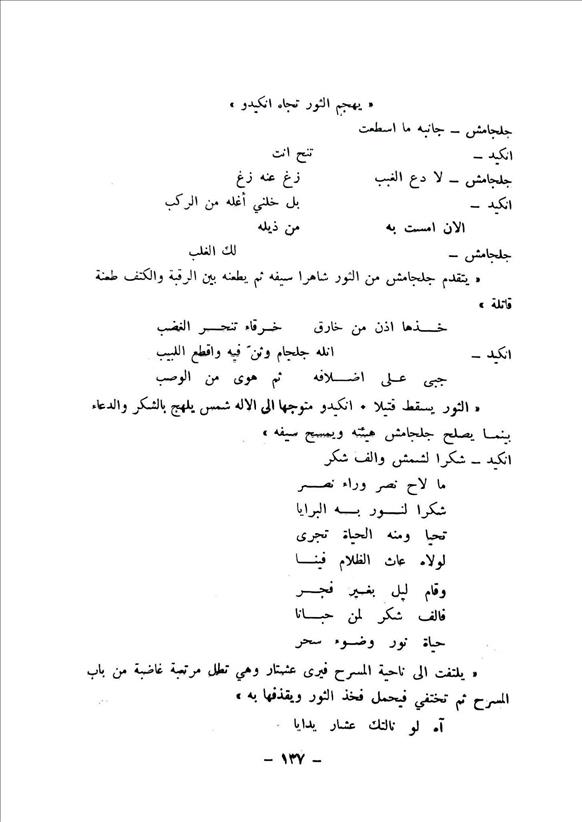 « يهجم الثور تجاه انكيدو »
جلجامش ــ جانبه ما اسطعت
انكيد ــ تنح انت
جلجامش ــ لا دع الغبب زغ عنه زغ
انكيد ــ بل خلني أغله من الركب
الان امست به من ذيله
جلجامش ــ لك الغلب
« يتقدم جلجامش من الثور شاهرا سيفه ثم يطعنه بين الرقبة والكتف طعنة
قاتلة »
خــذها اذن من خارق خــرقاء تنحــر الغضب
انكيد ــ انله جلجام وثنّ فيه واقطع اللبب
جبى عــلى اضــلافه ثم هوى من الوصب
« الثور يسقط قتيلا ٠ انكيدو متوجها الى الاله شمس يلهج بالشكر والدعاء
بينمــا يصلح جلجامش هيئته ويمسح سيفه »
انكيد ــ شكرا لشمش والف شكر
ما لاح نصر وراء نصــر
شكرا لنــور بــه البرايا
تحيا ومنه الحياة تجرى
لولاه عاث الظلام فينــا
وقام ليل بغــير فجــر
فالف شكر لمن حبــانا
حياة نور وضــوء سحر
« يلتفت الى ناحية المسرح فيرى عشتار وهي تطل مرتعبة غاضبة من باب
المسرح ثم تختفي فيحمل فخذ الثور ويقذفها به »
آه لو نالتك عشار يدايا
ــ ١٣٧ ــ